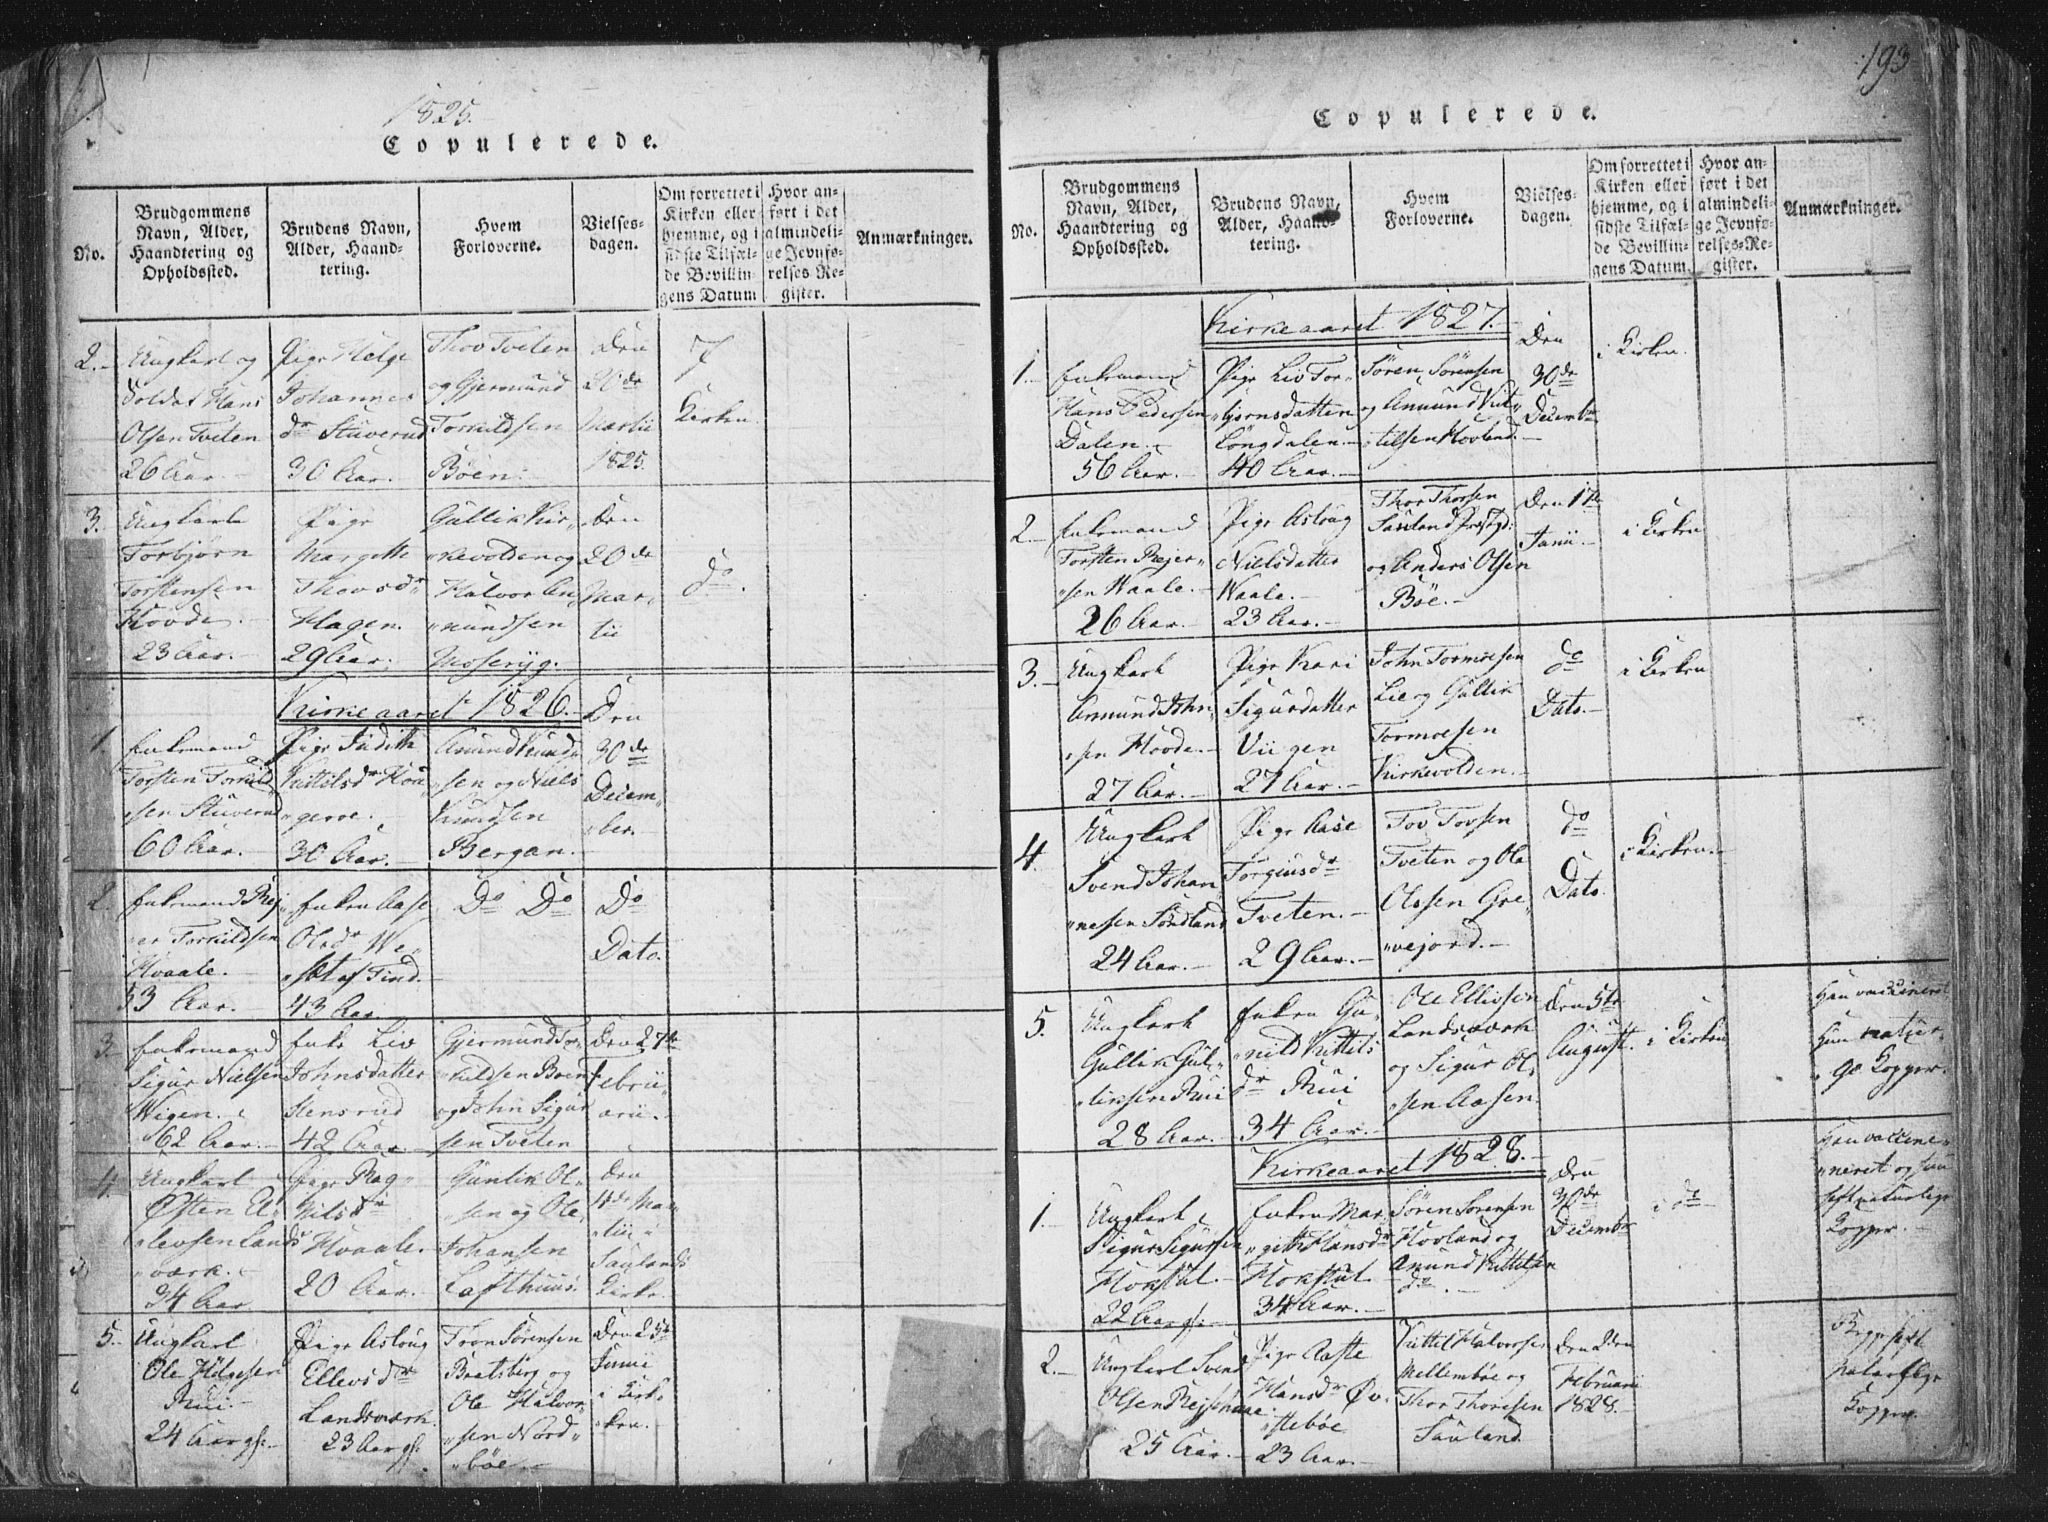 1825.
Copulerede.
No.
Brudgommens
Navn, Alder,
Haandtering og
Opholdssted.
Brudens Navn,
Alder, Haand-
tering.
Hvem
Forloverne.
Vielses-
dagen.
Om forrettet i
Kirken eller
hjemme, og i
sidste Tilfæl-
de Bevillin-
gens Datum
Hvor an-
ført i det
almindeli-
ge Jevnfø-
relses-Re-
gister.
Anmærkninger.
2.-
Ungkarl og
Soldat Hans
Olsen Tveten
26 Aar.
Pige Helge
Johannes
dr Stuverud
30 Aar.
Thov Tveten
og Gjermund
Torkildsen
Böen.
Den
20de
Martii
1825.
Kirken.
3.
Ungkarl
Torbjørn
Torstensen
Hovde.
23 Aar.
Pige
Margette
Thovsdr
Hagen.
29 Aar.
Gullik Kir-
"kevolden og
Halvor An-
"nundsen
Moseryg.
Den
20de
Mar-
tii
do.
Kirkeaaret 1826.
1.
Enkemand
Torsten Torkild
"sen Stuverud
60 Aar.
Pige Judith
Kittilsdr Hou
"gerve.
30 Aar.
Amund Knud-
"sen og Niels
Knudsen
Bergan.
Den
30de
Decem-
"ber.
2.
Enkemand Rej-
"er Torkildsen
Hvaale.
53 Aar.
Enken Aase
Olesdr We-
"set af Tind.
43 Aar.
Do Do
Do
Dato.
3.
Enkemand
Sigur Nielsen
Wigen.
62 Aar.
Enke Liv
Johnsdatter
Stensrud
42 Aar
Gjermund Tor-
"kildsen Boen
og John Sigur
sen Tveten
Den 27de
Febru-
arii.
4.
Ungkarl
Østen El-
"levsen Lands
"værk.
34 Aar
Pige Rag-
Nilsdr
Hvaale.
20 Aar.
Gunlik Ol-
"sen og Ole
Johansen
Lofthuus.
Den
4de Mar-
"tii i
Saulands
Kirke.
5.
Ungkarl
Ole Helgesen
Rui.
24 Aar gl:
Pige Asloug
Ellevsdr
Landsværk.
23 Aar gl:
Tron Sørensen
Bratsberg og
Ole Halvor-
"sen Nord-
"böe.
Den 25de
Junii
i Kir-
"ken.
193
Copulerede.
No.
Brudgommens
Navn, Alder,
Haandtering og
Opholdssted.
Brudens Navn,
Alder, Haand-
tering.
Hvem
Forloverne.
Vielses-
dagen.
Om forrettet i
Kirken eller
hjemme, og i
sidste Tilfæl-
de Bevillin-
gens Datum.
Hvor an-
ført i det
almindeli-
ge Jevnfø-
relses-Re-
gister.
Anmærkninger.
Kirkeaaret 1827.
1.
Enkemand
Hans Pedersen
Dalen.
56 Aar.
Pige Liv Tor-
"bjørnsdatter
Longdalen.
40 Aar.
Søren Sørensen
og Amund Kit-
"tilsen Hovland.
Den
30de
Decembr
i Kirken.
2.
Enkemand
Torsten Rejer-
"sen Waale.
26 Aar.
Pige Asloug
Nielsdatter
Waale.
23 Aar.
Thor Thorsen
Sauland
og Anders Olsen
Böe.
Den 17de
Junii
i Kirken
3.
Ungkarl
Amund John-
"sen Hovde.
27 Aar.
Pige Kari
Sigursdatter
Viigen
27 Aar.
John Tormoesen
Lier og Gullik
Tormoesen
Kirkevolden.
do
Dato.
i Kirken
4.
Ungkarl
Svend Johan-
"nesen Sondland
24 Aar.
Pige Aase
Torgiusdr
Tveten.
29 Aar.
Tov Tovsen
Tveten og Ole
Olssen Gre-
"vejord.
do
Dato.
i Kirken.
5.
Ungkarl
Gullik Gul-
"liksen Rui
28 Aar.
Enken Gu-
"nild Kittils
dr Rui
34 Aar.
Ole Ellevsen
Landsværk
og Sigur Ol-
"sen Aasen.
Den 5te
August.
i Kirken
Han vaccineret
Hun natur-
"ge Kopper.
Kirkeaaret 1828.
1.
Ungkarl
Sigur Sigursen
Hokstul.
22 Aar gl:
Enken Mar-
"githe Hansdr
Hokstul.
34 Aar.
Søren Sørensen
Hovland og
Amund Kittilsen
do.
Den
30de
Decembr
i do
Han vaccine-
"neret og hun
haft naturlige
Kopper.
2.
Ungkarl Svend
Olsen Rejshuse
25 Aar.
Pige Aaste
Hansdr Øv-
"stebøe
23 Aar.
Kittel Halvorsen
Mellembøe og
Thor Thoresen
Sauland
Den 2den
Februarii
1828.
Begge haft
naturlige
Kopper.